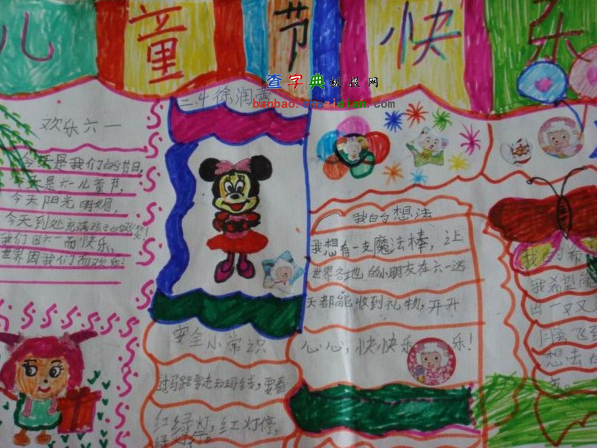 儿童节快乐
查字典 板报网
三年 徐润
欢乐六一
今天是我们的节日,
今天是六一儿童节,
今天阳光明媚,
今天到处充满
我们因六一而快乐,
世界因我们而欢乐!
我的想法
我想有一支魔法棒,让
世界各地的小朋友在六一这
天都能收到礼物,开开
心心,快快乐乐!
安全小常识
过马路要走斑马线,要看
红绿灯,红灯停,
绿灯
我的希
我希望能
四一双又
想去